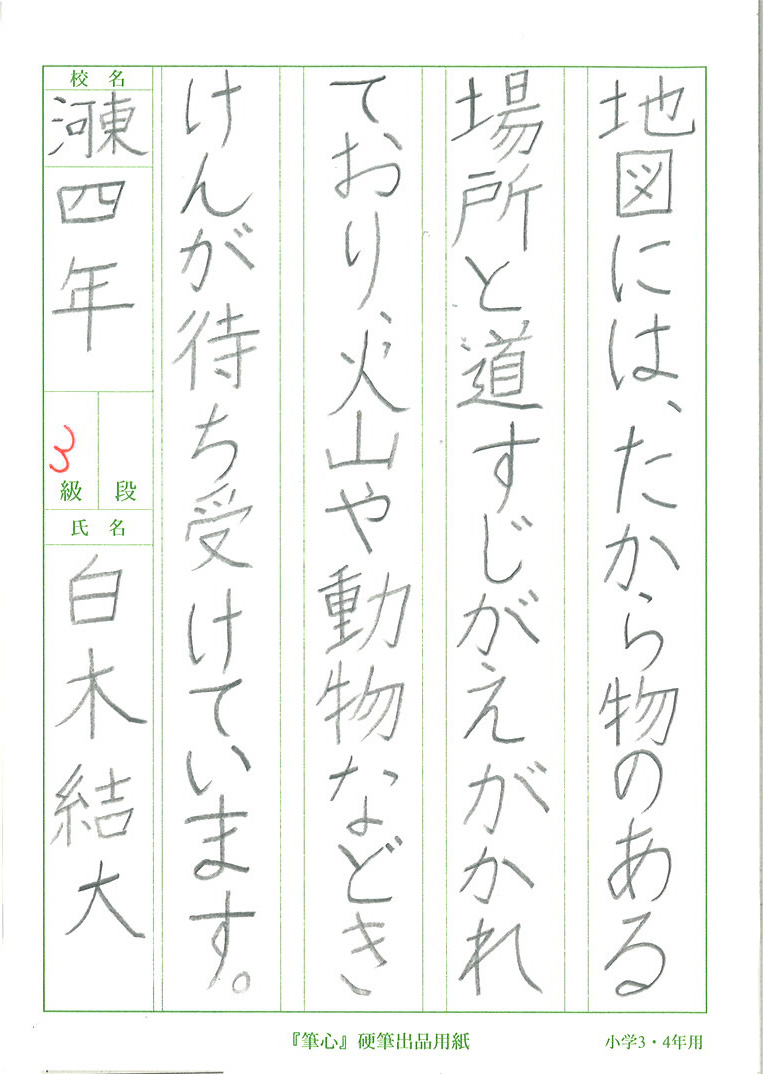 地図には、たから物のある
場所と道すじがえがかれ
ており、火山や動物などき
けんが待ち受けています。
校名
河東
四年
3
級
段
氏名
白木結大
『筆心』硬筆出品用紙
小学3・4年用